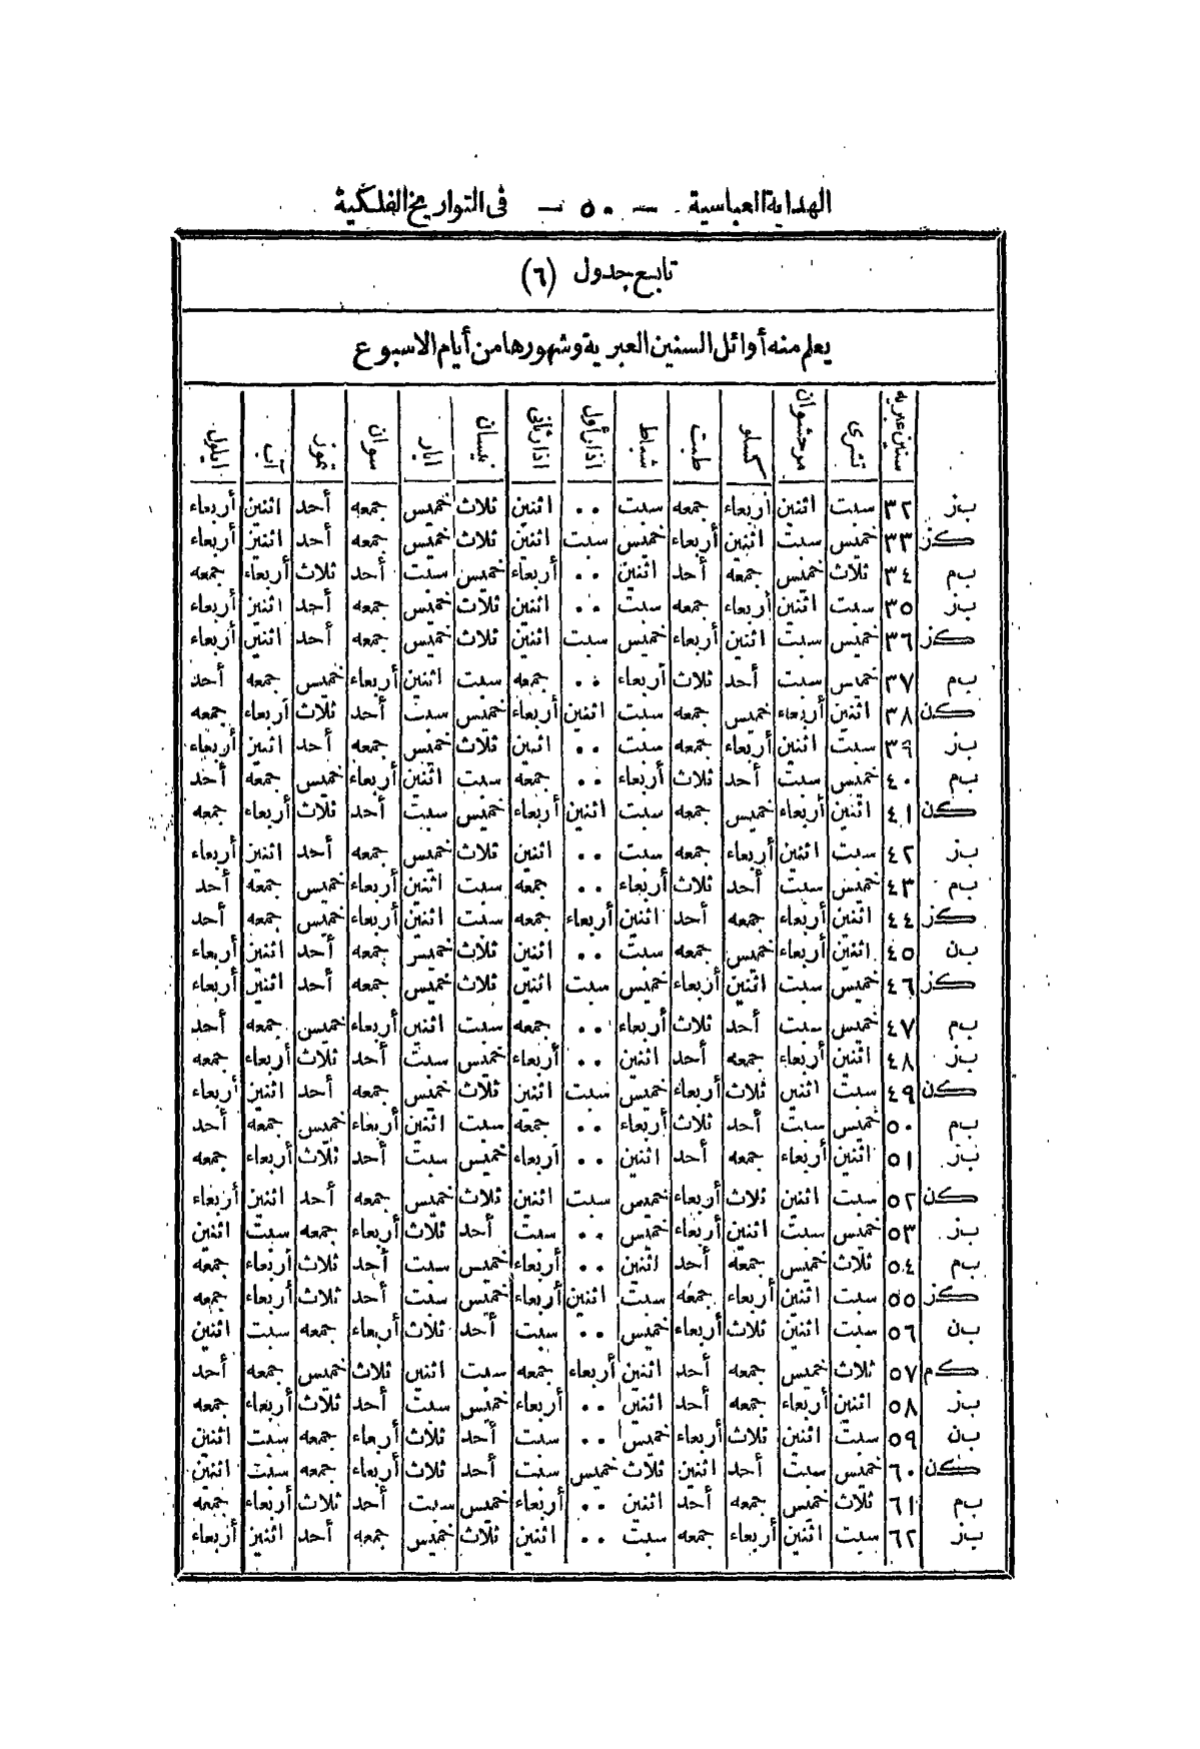 الهداية العباسية - ٥٠ - فى التواريخ الفلكية
تابع جدول (٦)
يعلم منه أوائل السنين العبرية وشهورها من أيام الاسبوع
سنين عبريه تشرى مرحشوان كسلو طبت شباط أذار أول اذار ثانى نيسان ايار سوان تموز آب ايلول
بز ٣٢ سبت اثنين أربعاء جمعه سبت ٠٠ اثنين ثلاث خميس جمعه أحد اثنين أربعاء
كز ٣٣ خميس سبت اثنين أربعاء خميس سبت اثنين ثلاث خميس جمعه أحد اثنين أربعاء
بم ٣٤ ثلاث خميس جمعه أحد اثنين ٠٠ أربعاء خميس سبت أحد ثلاث أربعاء جمعه
بز ٣٥ سبت اثنين أربعاء جمعه سبت ٠٠ اثنين ثلاث خميس جمعه أحد اثنين أربعاء
كز ٣٦ خميس سبت اثنين أربعاء خميس سبت اثنين ثلاث خميس جمعه أحد اثنين أربعاء
بم ٣٧ خميس سبت أحد ثلاث أربعاء ٠٠ جمعه سبت اثنين أربعاء خميس جمعه أحد
كن ٣٨ اثنين أربعاء خميس جمعه سبت اثنين أربعاء خميس سبت أحد ثلاث أربعاء جمعه
بز ٣٩ سبت اثنين أربعاء جمعه سبت ٠٠ اثنين ثلاث خميس جمعه أحد اثنين أربعاء
بم ٤٠ خميس سبت أحد ثلاث أربعاء ٠٠ جمعه سبت اثنين أربعاء خميس جمعه أحد
كن ٤١ اثنين أربعاء خميس جمعه سبت اثنين أربعاء خميس سبت أحد ثلاث أربعاء جمعه
بز ٤٢ سبت اثنين أربعاء جمعه سبت ٠٠ اثنين ثلاث خميس جمعه أحد اثنين أربعاء
بم ٤٣ خميس سبت أحد ثلاث أربعاء ٠٠ جمعه سبت اثنين أربعاء خميس جمعه أحد
كز ٤٤ اثنين أربعاء جمعه أحد اثنين أربعاء جمعه سبت اثنين أربعاء خميس جمعه أحد
بن ٤٥ اثنين أربعاء خميس جمعه سبت ٠٠ اثنين ثلاث خميس جمعه أحد اثنين أربعاء
كز ٤٦ خميس سبت اثنين أربعاء خميس سبت اثنين ثلاث خميس جمعه أحد اثنين أربعاء
بم ٤٧ خميس سبت أحد ثلاث أربعاء ٠٠ جمعه سبت اثنين أربعاء خميس جمعه أحد
بز ٤٨ اثنين أربعاء جمعه أحد اثنين ٠٠ أربعاء خميس سبت أحد ثلاث أربعاء جمعه
كن ٤٩ سبت اثنين ثلاث أربعاء خميس سبت اثنين ثلاث خميس جمعه أحد اثنين أربعاء
بم ٥٠ خميس سبت أحد ثلاث أربعاء ٠٠ جمعه سبت اثنين أربعاء خميس جمعه أحد
بز ٥١ اثنين أربعاء جمعه أحد اثنين ٠٠ أربعاء خميس سبت أحد ثلاث أربعاء جمعه
كن ٥٢ سبت اثنين ثلاث أربعاء خميس سبت اثنين ثلاث خميس جمعه أحد اثنين أربعاء
بز ٥٣ خميس سبت اثنين أربعاء خميس ٠٠ سبت أحد ثلاث أربعاء جمعه سبت اثنين
بم ٥٤ ثلاث خميس جمعه أحد اثنين ٠٠ أربعاء خميس سبت أحد ثلاث أربعاء جمعه
كز ٥٥ سبت اثنين أربعاء جمعه سبت اثنين أربعاء خميس سبت أحد ثلاث أربعاء جمعه
بن ٥٦ سبت اثنين ثلاث أربعاء خميس ٠٠ سبت أحد ثلاث أربعاء جمعه سبت اثنين
كم ٥٧ ثلاث خميس جمعه أحد اثنين أربعاء جمعه سبت اثنين ثلاث خميس جمعه أحد
بز ٥٨ اثنين أربعاء جمعه أحد اثنين ٠٠ أربعاء خميس سبت أحد ثلاث أربعاء جمعه
بن ٥٩ سبت اثنين ثلاث أربعاء خميس ٠٠ سبت أحد ثلاث أربعاء جمعه سبت اثنين
كن ٦٠ خميس سبت أحد اثنين ثلاث خميس سبت أحد ثلاث أربعاء جمعه سبت اثنين
بم ٦١ ثلاث خميس جمعه أحد اثنين ٠٠ أربعاء خميس سبت أحد ثلاث أربعاء جمعه
بز ٦٢ سبت اثنين أربعاء جمعه سبت ٠٠ اثنين ثلاث خميس جمعه أحد اثنين أربعاء